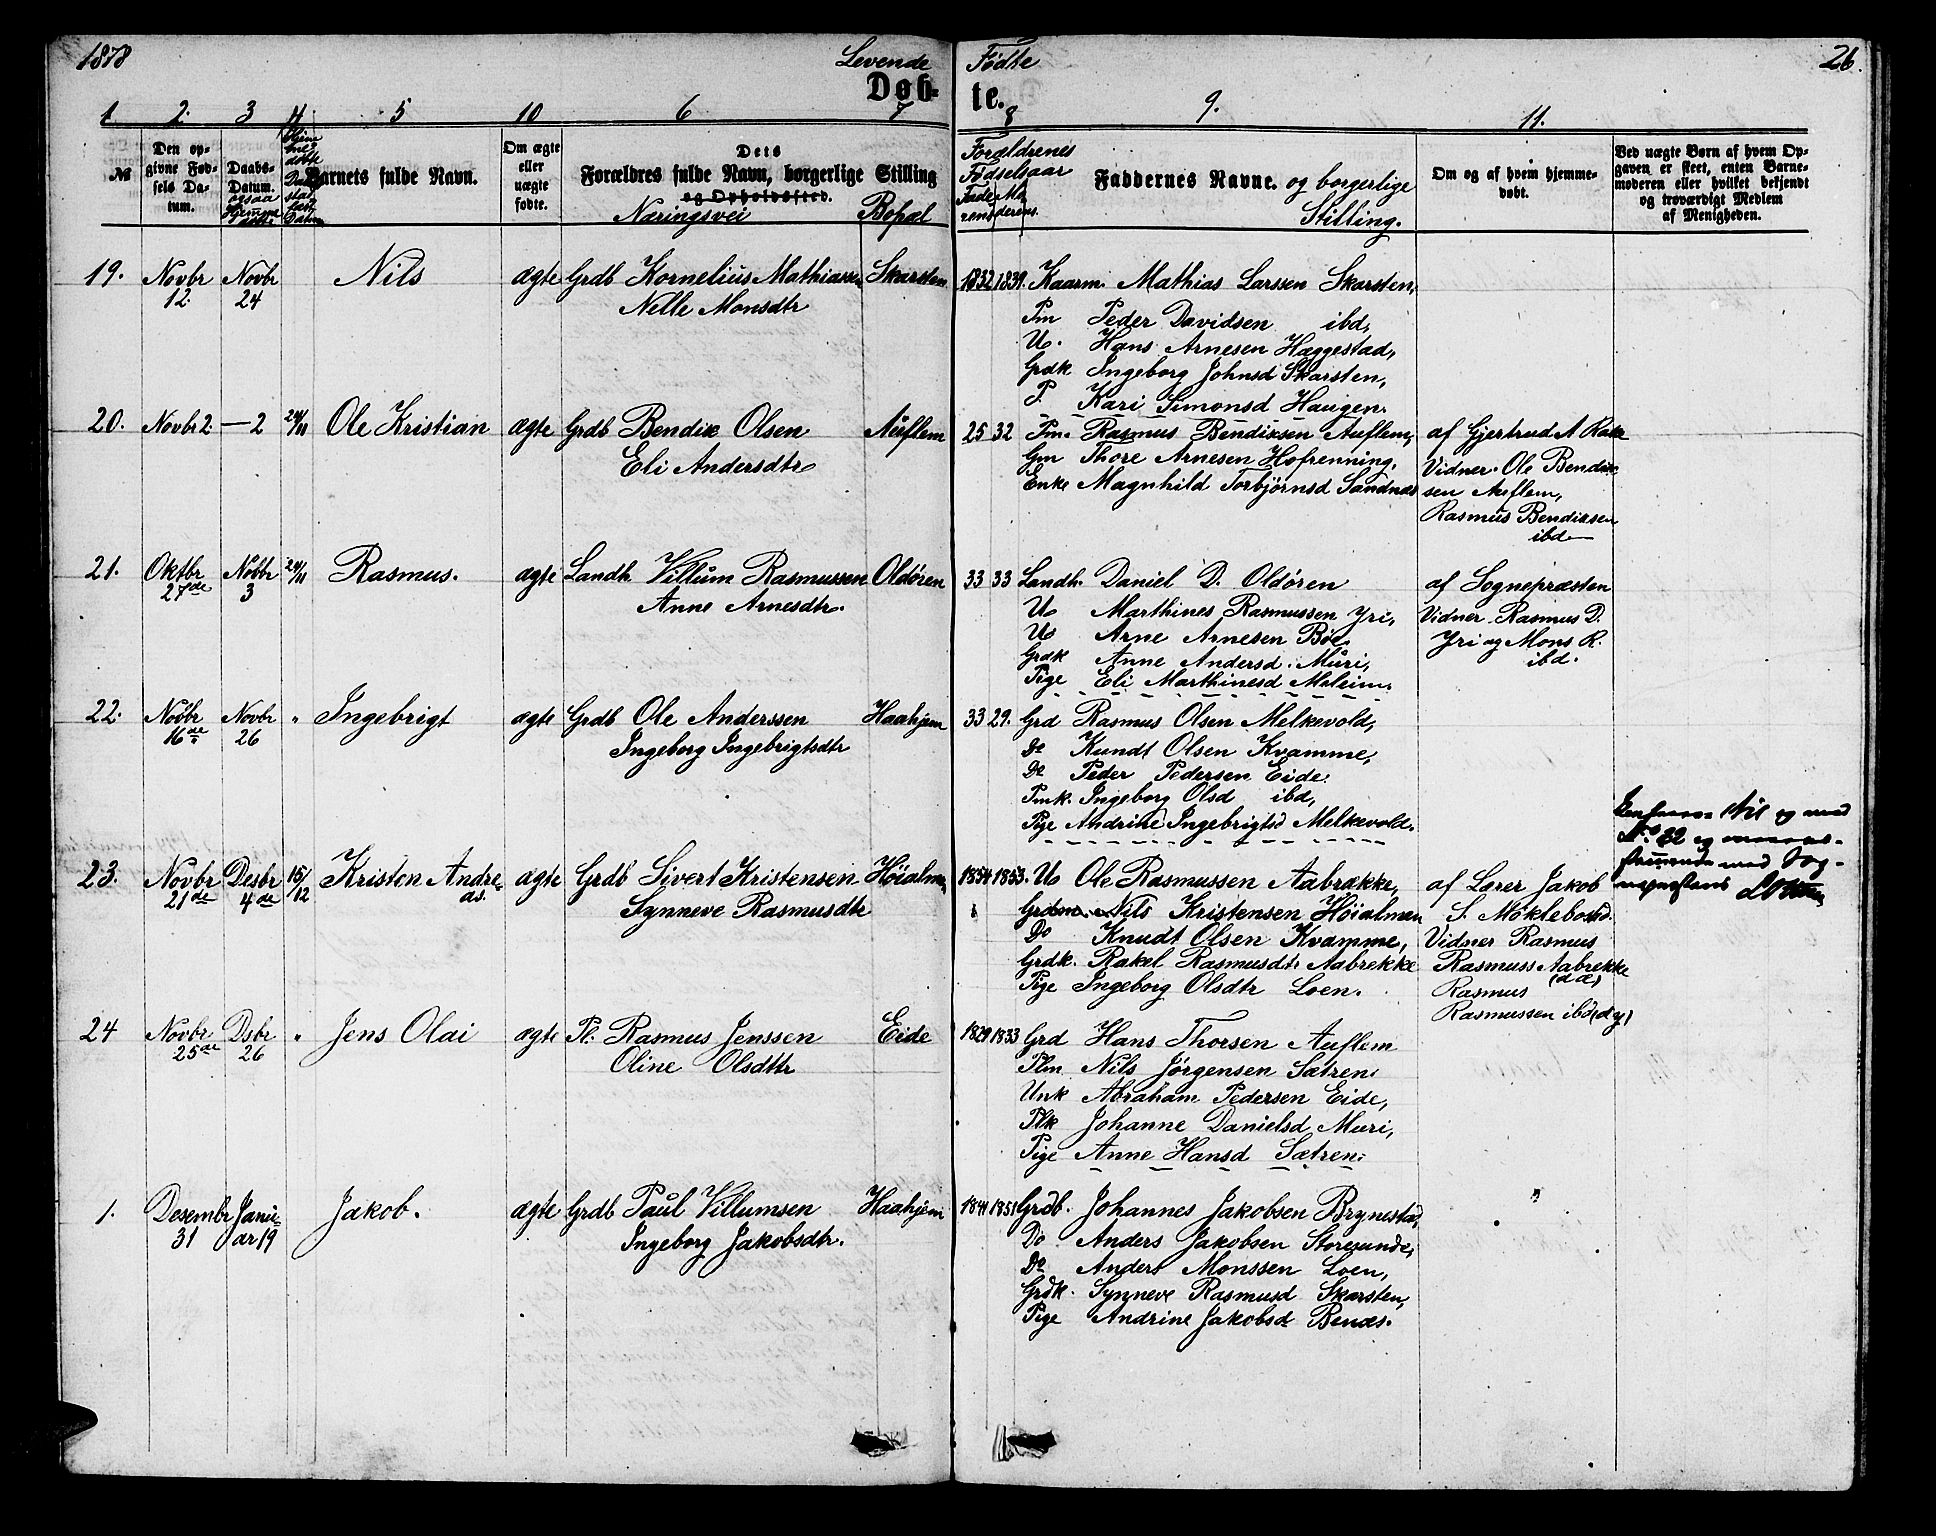 1878 Levende Fødte 26.
Døbte.
1 2. 3 4 5 10 6 7 8 9. 11.
№ Den opgivne Fødsels Datum. Daabs-Datum. Barnets fulde Navn. Om ægte eller uægte fødte. Dets Forældres fulde Navn, borgerlige Stilling og Opholdssted. Næringsvei Bopæl Forældrenes Fødselsaar Faderens Moderens. Faddernes Navne. og borgerlige Stilling. Om og af hvem hjemmedøbt. Ved uægte Børn af hvem Opgaven er skeet, enten Barnemoderen eller hvilket bekjendt og troværdigt Medlem af Menigheden.
19. Novbr Novbr Nils ægte Grdb Kornelius Mathiassen Skarsten 1832 1839. Kaarm. Mathias Larssen Skarsten,
12. 24 Nelle Monsdtr Pm Peder Davidsen ibd,
U. Hans Arnesen Hæggestad,
Grdk Ingeborg Johnsd Skarsten,
P. Kari Simonsd Haugen.
20. Novbr 2. —2 24/11 Ole Kristian ægte Grdb Bendix Olsen Auflem 25 32 Pm. Rasmus Bendixsen Auflem, af Gjertrud A Rake
Eli Andersdtr Gm Thore Arnesen Hofrenning, Vidner. Ole Bendix
Enke Magnhild Torbjørnsd Sandnes sen Auflem,
Rasmus Bendixsen
ibd—
21. Oktbr Novbr 24/11 Rasmus. ægte Landh. Villum Rasmussen Oldøren 33 33 Landh. Daniel D. Oldøren af Sognepræsten
27de 3 Anne Arnesdtr. U Marthines Rasmussen Yri, Vidner. Rasmus D.
U Arne Arnesen Bøe Yri og Mons R.
Grdk Anne Andersd. Muri, ibd.
Pige Eli Marthinesd Meleim.
22. Novbr Novbr " Ingebrigt ægte Grdb Ole Anderssen Haahjem 33 29. Grd Rasmus Olsen Melkevold,
16de 26 Ingeborg Ingebrigtsdtr Do Knudt Olsen Kvamme,
Do Peder Pedersen Eide.
Pmk. Ingeborg Olsd ibd,
Pige Andrine Ingebrigtsd Melkevold.
til og med
No 22 og
med Sog-
23. Novbr Desbr 15/12 Kristen Andre- ægte Grdb Sivert Kristensen Høialmen 1854 1853. U Ole Rasmussen Aabrække, af Lærer Jakob
21de 4de as. Synneve Rasmusdtr Nils Kristensen Høialmen S. Møklebost.
Do Knudt Olsen Kvamme, Vidner Rasmus
Grdk. Rakel Rasmusdtr Aabrekke Rasmuss Aabrekke
Pige Ingeborg Olsdtr Loen. Rasmus (d æ)
Rasmussen ibd (d y)
24 Novbr Dsbr " Jens Olai ægte Pl. Rasmus Jenssen Eide 1829 1833 Grd Hans Thorsen Auflem
25de 26 Oline Olsdttr Plm Nils Jørgensen Sætren.
Unk Abraham Pedersen Eide,
Plk Johanne Danielsd Muri,
Pige Anne Hansd Sætren.
1. Desembr Janu- Jakob. ægte Grdb Paul Villumsen Haahjem 1841 1851 Grdb. Johannes Jakobsen Brynestad, "
31 ar 19 Ingeborg Jakobsdtr. Do Anders Jakobsen Storesunde,
Do Anders Monssen Loen,
Grdk. Synneve Rasmusd Skarsten,
Pige Andrine Jakobsd Benæs.